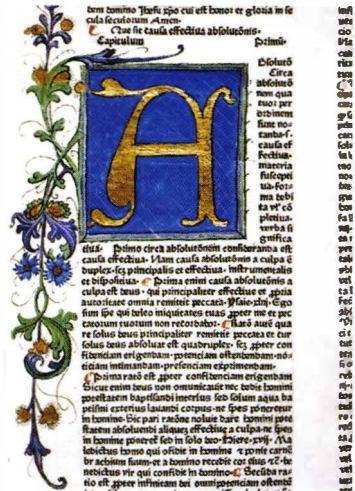 dem domino Ihesu xpo cui est honor et gloria in se
cula seculorum Amen·
Que sit causa effectiua absolutōnis·
Capitulum Primū·
A Bsolutō
Circa
absolutō
nem qua
tuor per
ordinem
sunt no-
tanda·s·
causa ef
fectiua·
materia
suscepti
ua·for-
ma debi
ta et cō
pletiua·
verba si
gnifica
tiua· Primo circa absolutōnem consideranda est
causa effectiua· Nam causa absolutōnis a culpa ē
duplex·sꝫ principalis et effectiua· instrumentalis
et dispositiua· Prima enim causa absolutōnis a
culpa est deus· qui principaliter effectiue et ꝓpria
autoritate omnia remittit peccata· Ysaie·xliij· Ego
sum ipe qui deleo iniquitates tuas ꝓpter me et pec
catorum tuorum non recordabor· Rarō aūe qua
re solus deus principaliter remittit peccata et cur
solus deus absoluat est quadruplex· sꝫ ꝓpter con
fidenciam erigendam·potenciam ostendendam·no-
ticiam intimandam·presenciam exprimendam·
Prima raō est ꝓpter confidenciam erigendam
Sicut enim deus non cōmunicauit nec dedit homini
potestatem baptisandi interius sed solum aqua ba
ptismi exterius lauandi corpus·ne spes poneretur
in homine·Sic pari racōne noluit dare homini pote
statem absoluendi aliquem effectiue a culpa·ne spes
in homine poneret sed in solo deo·Hiere·xvij· Ma
ledictus homo qui ofidit in homine et ponit carnē
br achium suum·et a domino recedit cor eius et be
nedictus vir qui ofidit in domino· Secūda ra
tio est ꝓpter infinitam dei omnipotenciam ostendē